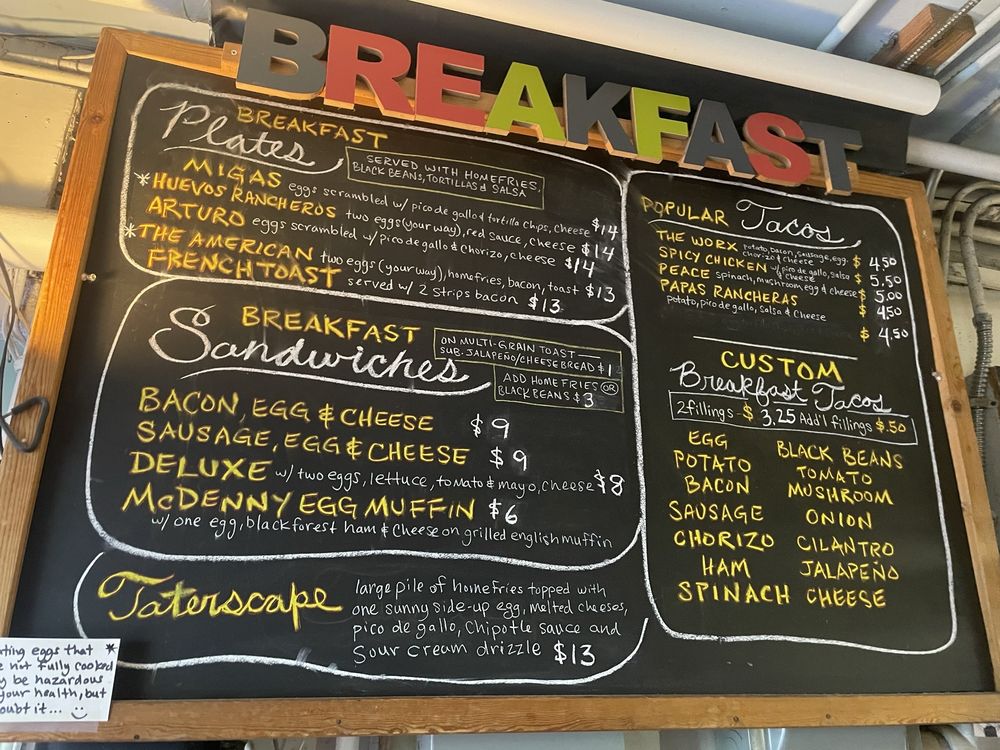 BREAKFAST
BREAKFAST
Plates
SERVED WITH HOMEFRIES,
BLACK BEANS, TORTILLAS & SALSA
MIGAS eggs scrambled w/ pico de gallo & tortilla chips, cheese $14
*HUEVOS RANCHEROS two eggs (your way), red sauce, cheese $14
ARTURO eggs scrambled w/ pico de gallo & chorizo, cheese $14
*THE AMERICAN two eggs (your way), homefries, bacon, toast $13
FRENCH TOAST served w/ 2 strips bacon $13
BREAKFAST
Sandwiches
ON MULTI-GRAIN TOAST
SUB. JALAPEÑO/CHEESE BREAD $1
ADD HOME FRIES OR
BLACK BEANS $3
BACON, EGG & CHEESE $9
SAUSAGE, EGG & CHEESE $9
DELUXE w/ two eggs, lettuce, tomato & mayo, cheese $8
McDENNY EGG MUFFIN $6
w/ one egg, black forest ham & cheese on grilled english muffin
Taterscape
large pile of homefries topped with
one sunny side-up egg, melted cheeses,
pico de gallo, Chipotle sauce and
Sour cream drizzle $13
POPULAR Tacos
THE WORX potato, bacon, sausage, egg, $4.50
chorizo & cheese
SPICY CHICKEN w/ pico de gallo, salsa $5.50
& cheese
PEACE spinach, mushroom, egg & cheese $5.00
PAPAS RANCHERAS $4.50
potato, pico de gallo, salsa & cheese
$4.50
CUSTOM
Breakfast Tacos
2 fillings - $3.25 Add'l fillings $.50
EGG BLACK BEANS
POTATO TOMATO
BACON MUSHROOM
SAUSAGE ONION
CHORIZO CILANTRO
HAM JALAPEÑO
SPINACH CHEESE
ting eggs that *
e not fully cooked
y be hazardous
your health, but
oubt it...